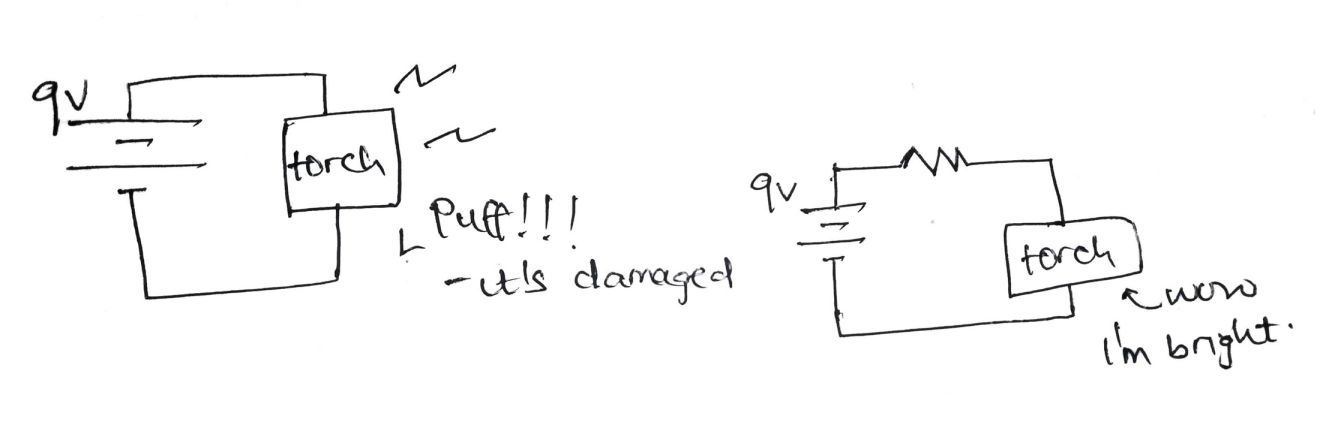 9V
torch
Puff!!!
- it's damaged
9V
torch
wow
I'm bright.